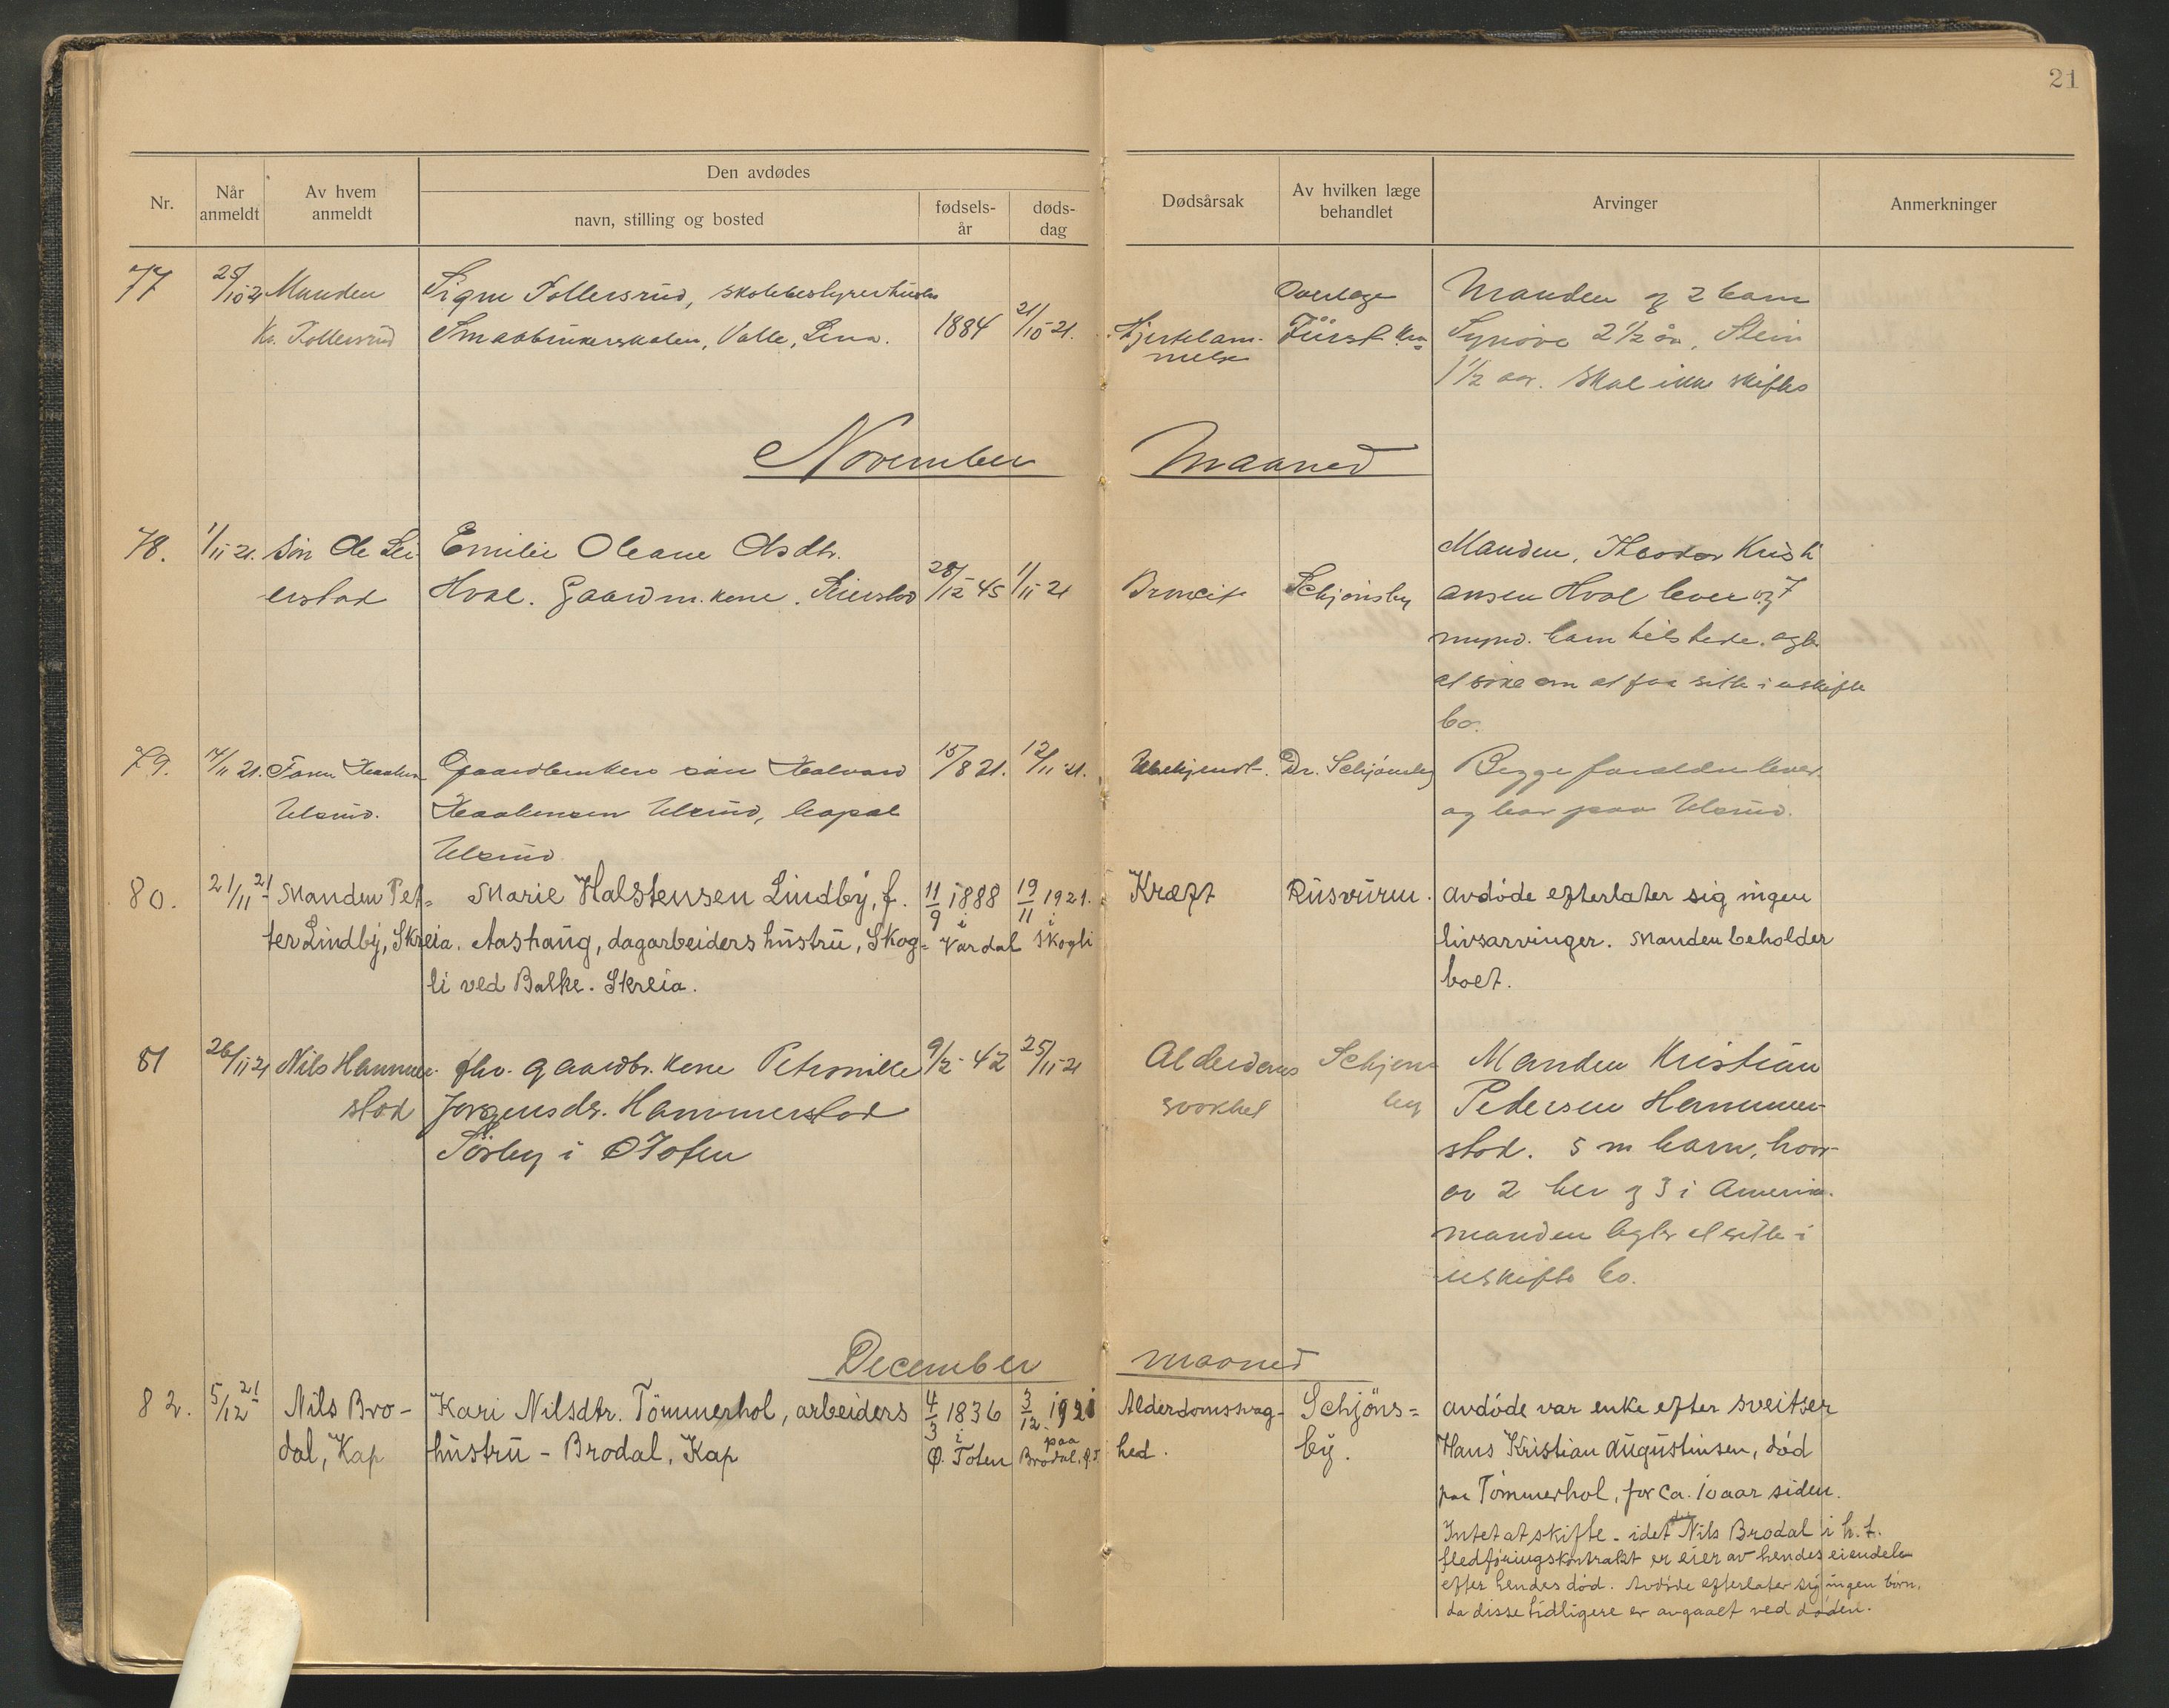 21
Nr.
Når
anmeldt
Av hvem
anmeldt
Den avdødes
navn, stilling og bosted
fødsels-
år
døds-
dag
Dødsårsak
Av hvilken læge
behandlet
Arvinger
Anmerkninger
77
25/10 21 Manden
Kr. Tollersrud
Signe Tollersrud, skolebestyrerhustru
Smaabrukerskolen, Valle, Lena.
1884
21/10 21.
Hjertelam-
melse
Overlæge
Fürst. Kra
Manden og 2 barn
Synöve 2 1/2 år, Stein
1 1/2 aar. Skal ikke skiftes
November Maaned
78.
1/11 21.
Sön Ole Lei
erstad
Emilie Oleane Olsdtr.
Hval. Gaardm. kone.
28/12 45
1/11 21
Broncit
Schjönsby
Manden, Theodor Kristi
ansen Hval lever og 7
mynd. barn tilstede. agter
at söke om at faa sitte i uskifte
bo.
79.
14/11 21.
Faren Haaken
Ulsrud.
Gaardbruker sön Halvard
Haakensen Ulsrud, Kapal
Ulsrud
15/8 21.
12/11 21.
Ubekjendt.
Dr. Schjönsby
Begge foreldre lever
og bor paa Ulsrud.
80.
21/11 21
Manden Pet-
ter Lindby, Skreia.
Marie Halstensen Lindby, f.
Aashaug, dagarbeiders hustru, Skog-
li ved Balke. Skreia.
11/9 1888
i
Vardal
19/11 1921.
i
Skogli
Kræft
Rusvurm.
avdöde efterlater sig ingen
livsarvinger. Manden beholder
boet.
81
26/11 21
Nils Hammer-
stad
fhv. gaardbr. kone Petronille
Jorgensdr. Hammerstad
Sörby i ØToten
9/2 42
25/11 21
Alderdoms
svakhet
Schjöns
by
Manden Kristian
Pedersen Hammer-
stad. 5 m barn, hvor-
av 2 her og 3 i Amerika.
manden agter at sitte i
uskiftet bo.
December maaned
82.
5/12 21
Nils Bro-
dal, Kap
Kari Nilsdtr. Tömmerhol, arbeiders
hustru - Brodal, Kap
4/3 1836
i
Ø. Toten
3/12 1921
paa
Brodal, Ø.T.
Alderdomssvag-
hed.
Schjöns-
by.
avdöde var enke efter sveitser
Hans Kristian Augustinsen, död
paa Tömmerhol, for ca. 10 aar siden.
Intet at skifte - idet Nils Brodal i h. t.
fledföringskontrakt er eier av hendes eiendele
efter hendes död. Avdöde efterlater sig ingen börn,
da disse tidligere er avgaaet ved döden.